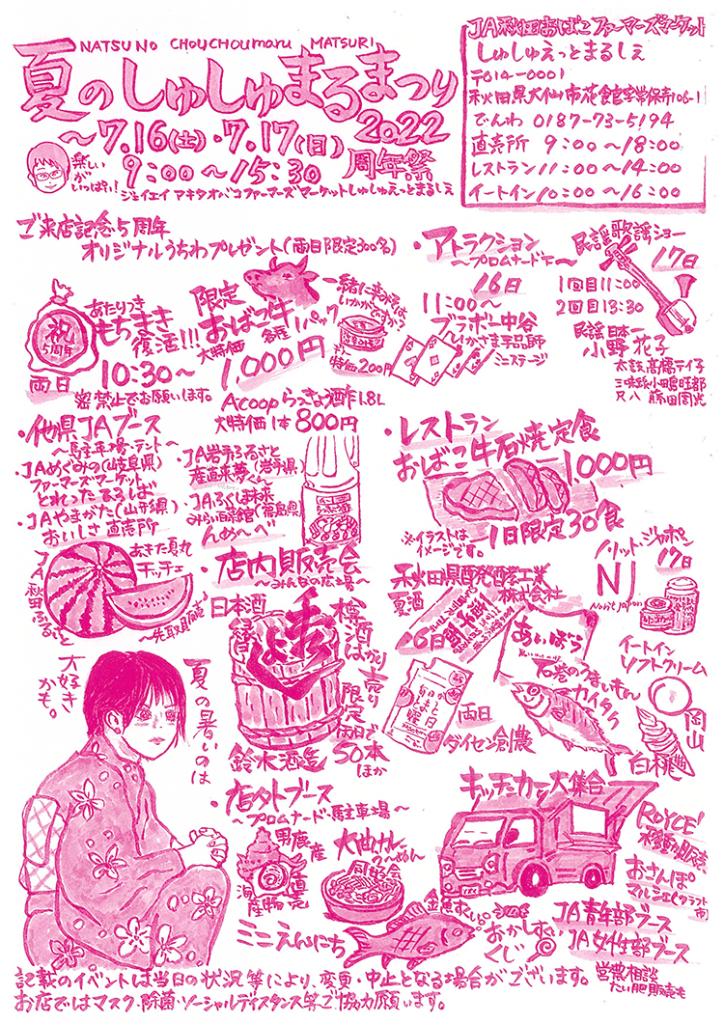 NATSU NO CHOUCHOUmaru MATSURI
夏のしゅしゅまるまつり
〜7.16(土)・7.17(日)2022
9:00〜15:30 周年祭
楽しいがいっぱい!
ジェイエイ アキタオバコファーマーズマーケットしゅしゅえっとまるしぇ
JA秋田おばこファーマーズマーケット
しゅしゅえっとまるしぇ
〒014-0001
秋田県大仙市花館字常保寺106-1
でんわ 0187-73-5194
直売所 9:00〜18:00
レストラン 11:00〜14:00
イートイン 10:00〜16:00
ご来店記念5周年
オリジナルうちわプレゼント(両日限定300名)
祝
5周年
両日
あたりつき
もちまき
復活!!!
10:30〜
密禁止でお願います。
限定
おばこ牛
1パック
大特価
1,000円
一緒に
いかがですか?
特価200円
Acoop らっきょう酢1.8L
大特価1本800円
・アトラクション
〜プロムナード下〜
16日
11:00〜
ブラボー中谷
ミニステージ
民謡歌謡ショー
17日
1回目11:00
2回目13:30
民謡日本一
小野花子
・他県JAブース
〜駐車場・テント〜
・JAめぐみの(岐阜県)
ファーマーズマーケット
とれったひろば
・JAやまがた(山形県)
おいしさ直売所
・JA岩手ふるさと
産直来夢くん(岩手県)
・JAふくしま未来
みらい百彩館(福島県)
んめ〜べ
JA秋田ふるさと
あきた夏丸
チッチェ
・レストラン
おばこ牛石焼定食
1,000円
※イラストは
イメージです。
1日限定30食
・店内販売会
〜みんなの広場〜
日本酒
秀よし
樽酒
はかり売り
限定
両日で
50本
ほか
鈴木酒造
秋田県醗酵工業
株式会社
夏酒
・16日
両日
ダイセン創農
ノリット・ジャポン
17日
NJ
Norit Japon
あいぼう
石巻のうまいもん
カイタク
イートイン
ソフトクリーム
岡山
白桃
夏の暑いのは
大好き
かも。
・店外ブース
〜プロムナード・駐車場〜
男鹿産
海産物
直売
ミニえんにち
金魚すくい。
おかしすくい
くじ
キッチンカー大集合
ROYCE'
おさんぽ
マルシェ(クラフト市)
JA青年部ブース
JA女性部ブース
営農相談
たい肥販売も
記載のイベントは当日の状況等により、変更・中止となる場合がございます。
お店ではマスク・除菌・ソーシャルディスタンス等ご協力願います。